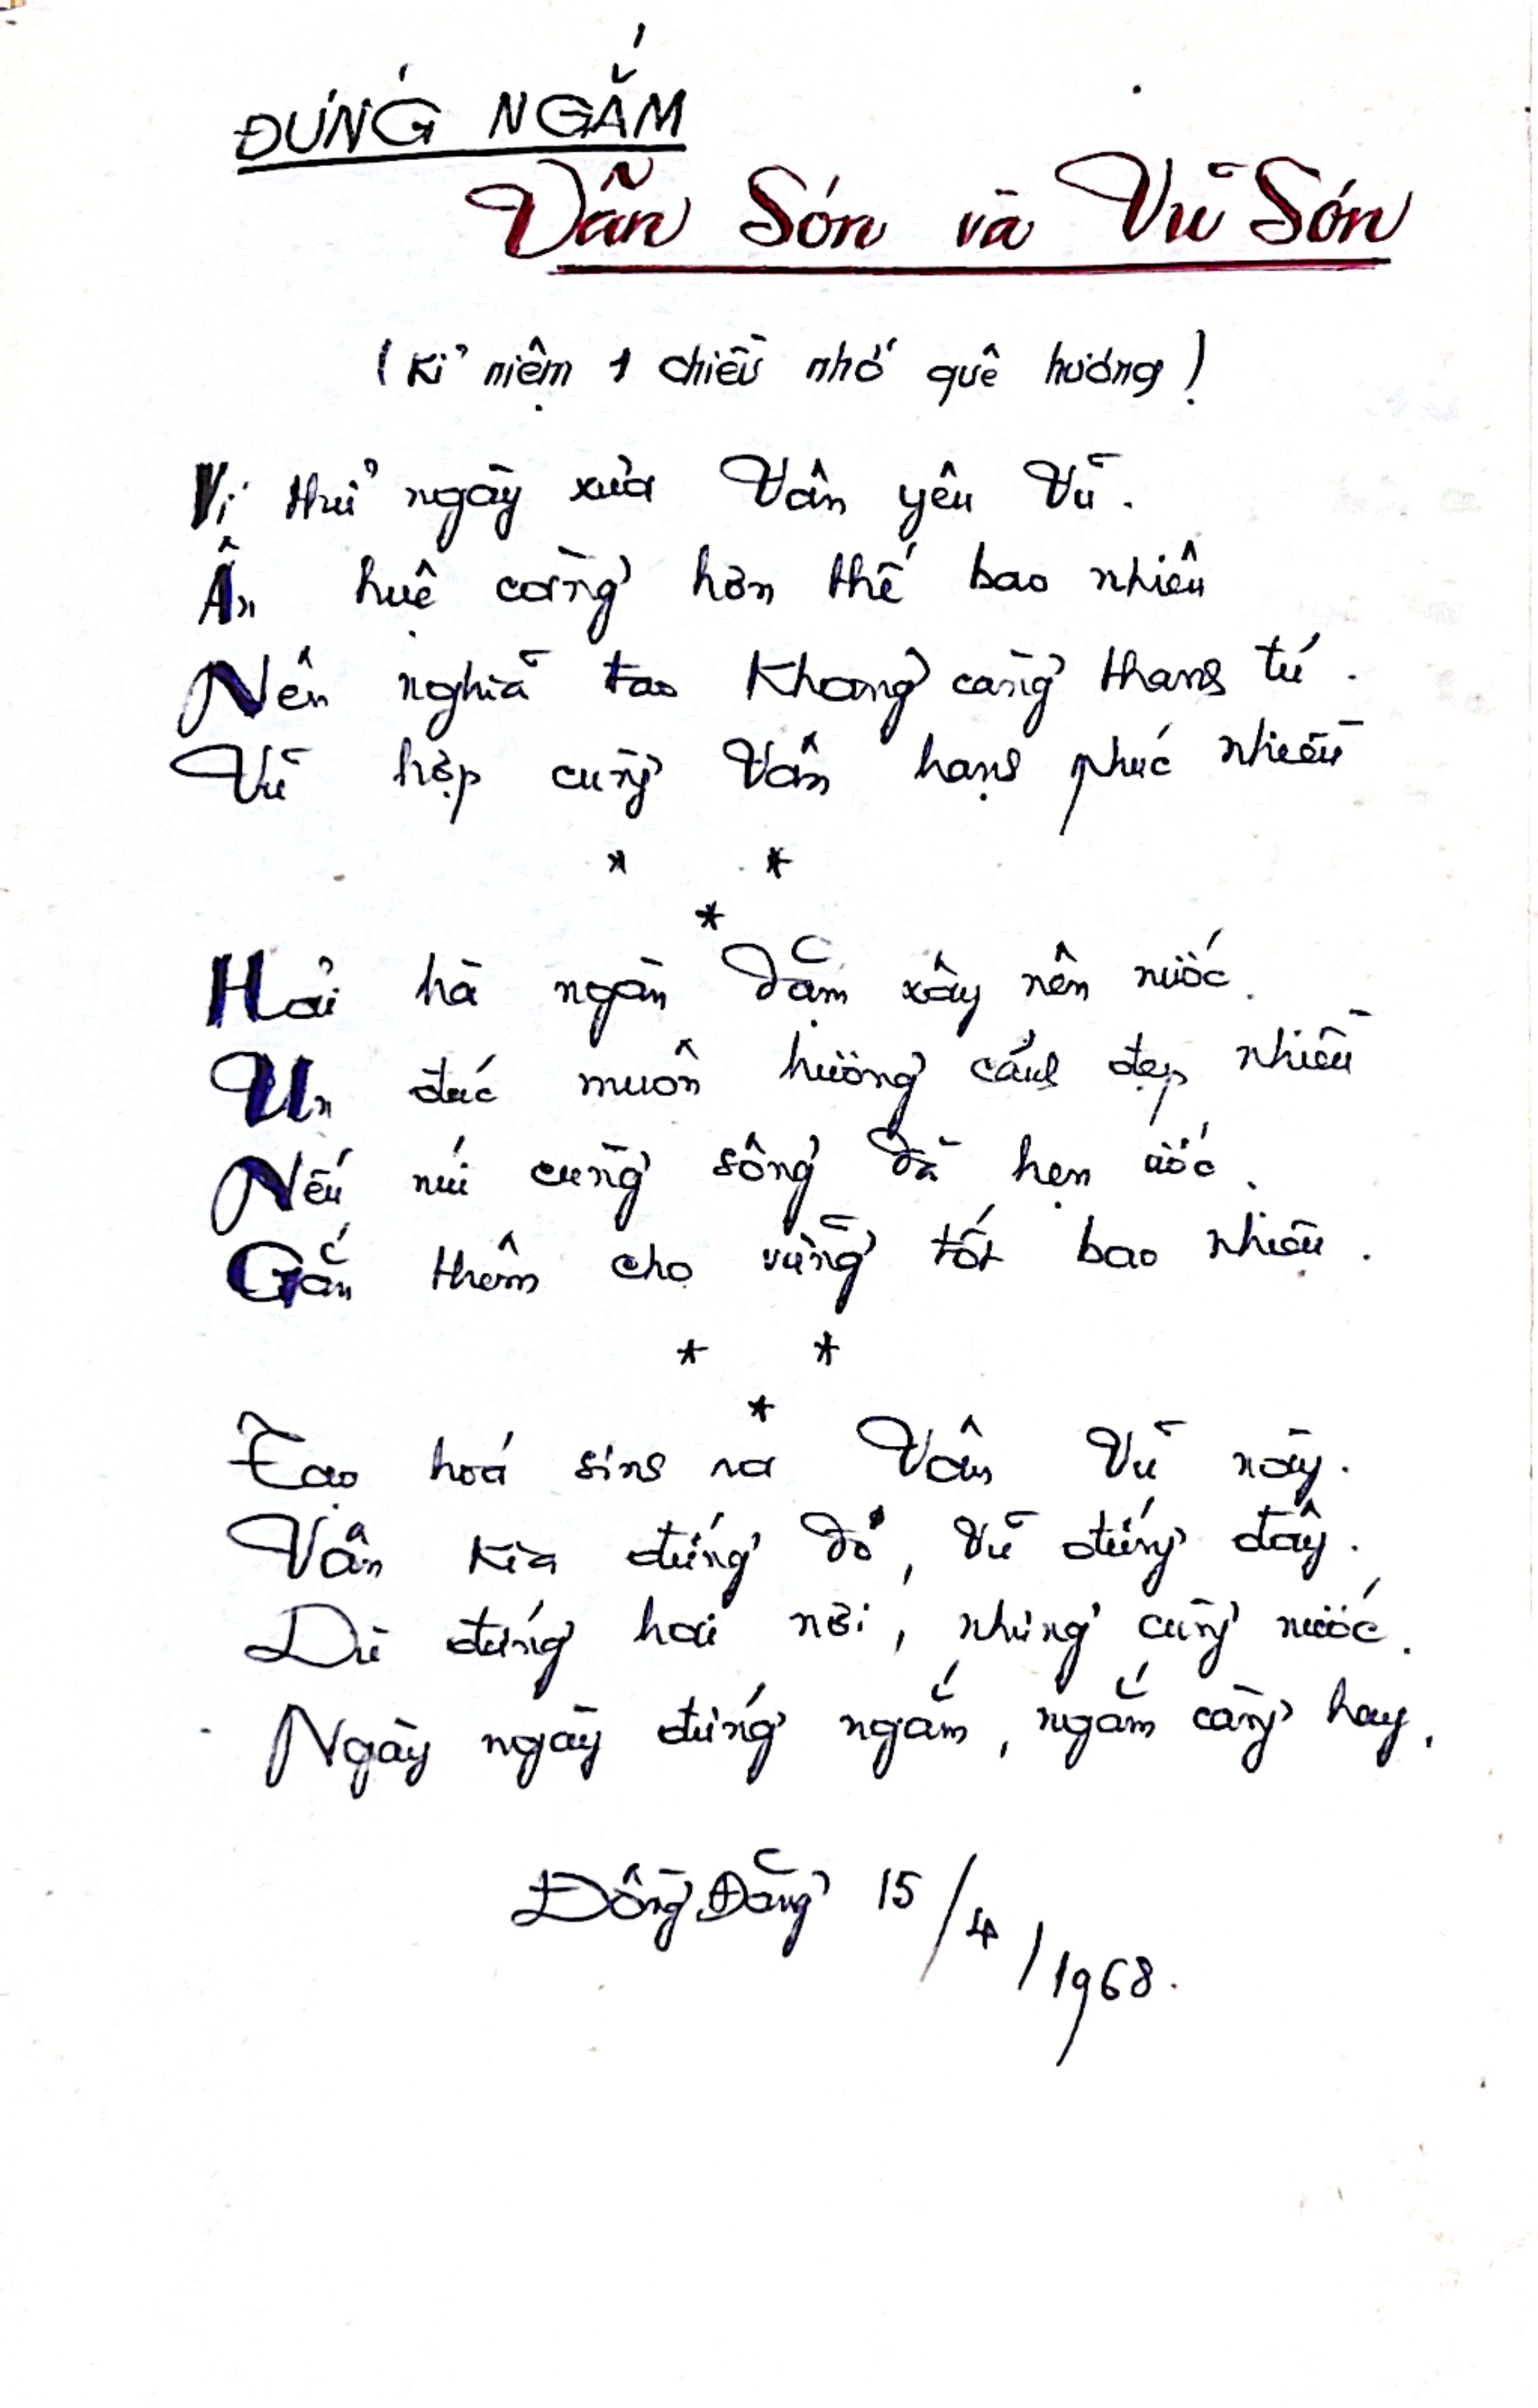 ĐỨNG NGẮM
Vân Sơn và Vũ Sơn
(Kỉ niệm 1 chiều nhớ quê hương)
Vì thuở ngày xưa Vân yêu Vũ.
Ân huệ càng hơn thế bao nhiêu
Nên nghĩa tao khang càng thanh tú.
Vũ hợp cùng Vân hạnh phúc nhiều
* *
*
Hải hà ngàn dặm xây nên nước.
Un đúc muôn hường cảnh đẹp nhiều
Nếu núi cùng sông đã hẹn ước.
Gắn thêm cho vững tốt bao nhiêu.
* *
*
Tạo hoá sinh ra Vân Vũ này.
Vân kia đứng đó, Vũ đứng đây.
Dù đứng hai nơi, nhưng cùng nước.
Ngày ngày đứng ngắm, ngắm càng hay.
Đồng Đăng 15/4/1968.